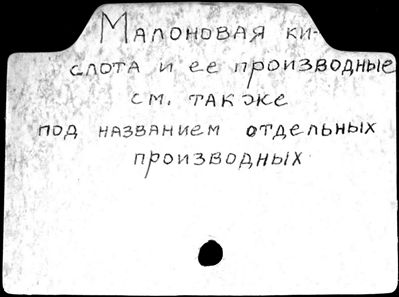 Малоновая ки-
слота и ее производные
см. также
под названием отдельных
производных